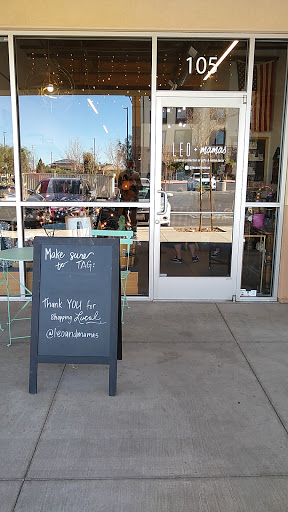 105
LEO + mamas
Make sure
to TAG:
Thank YOU for
shopping Local
@leoandmamas